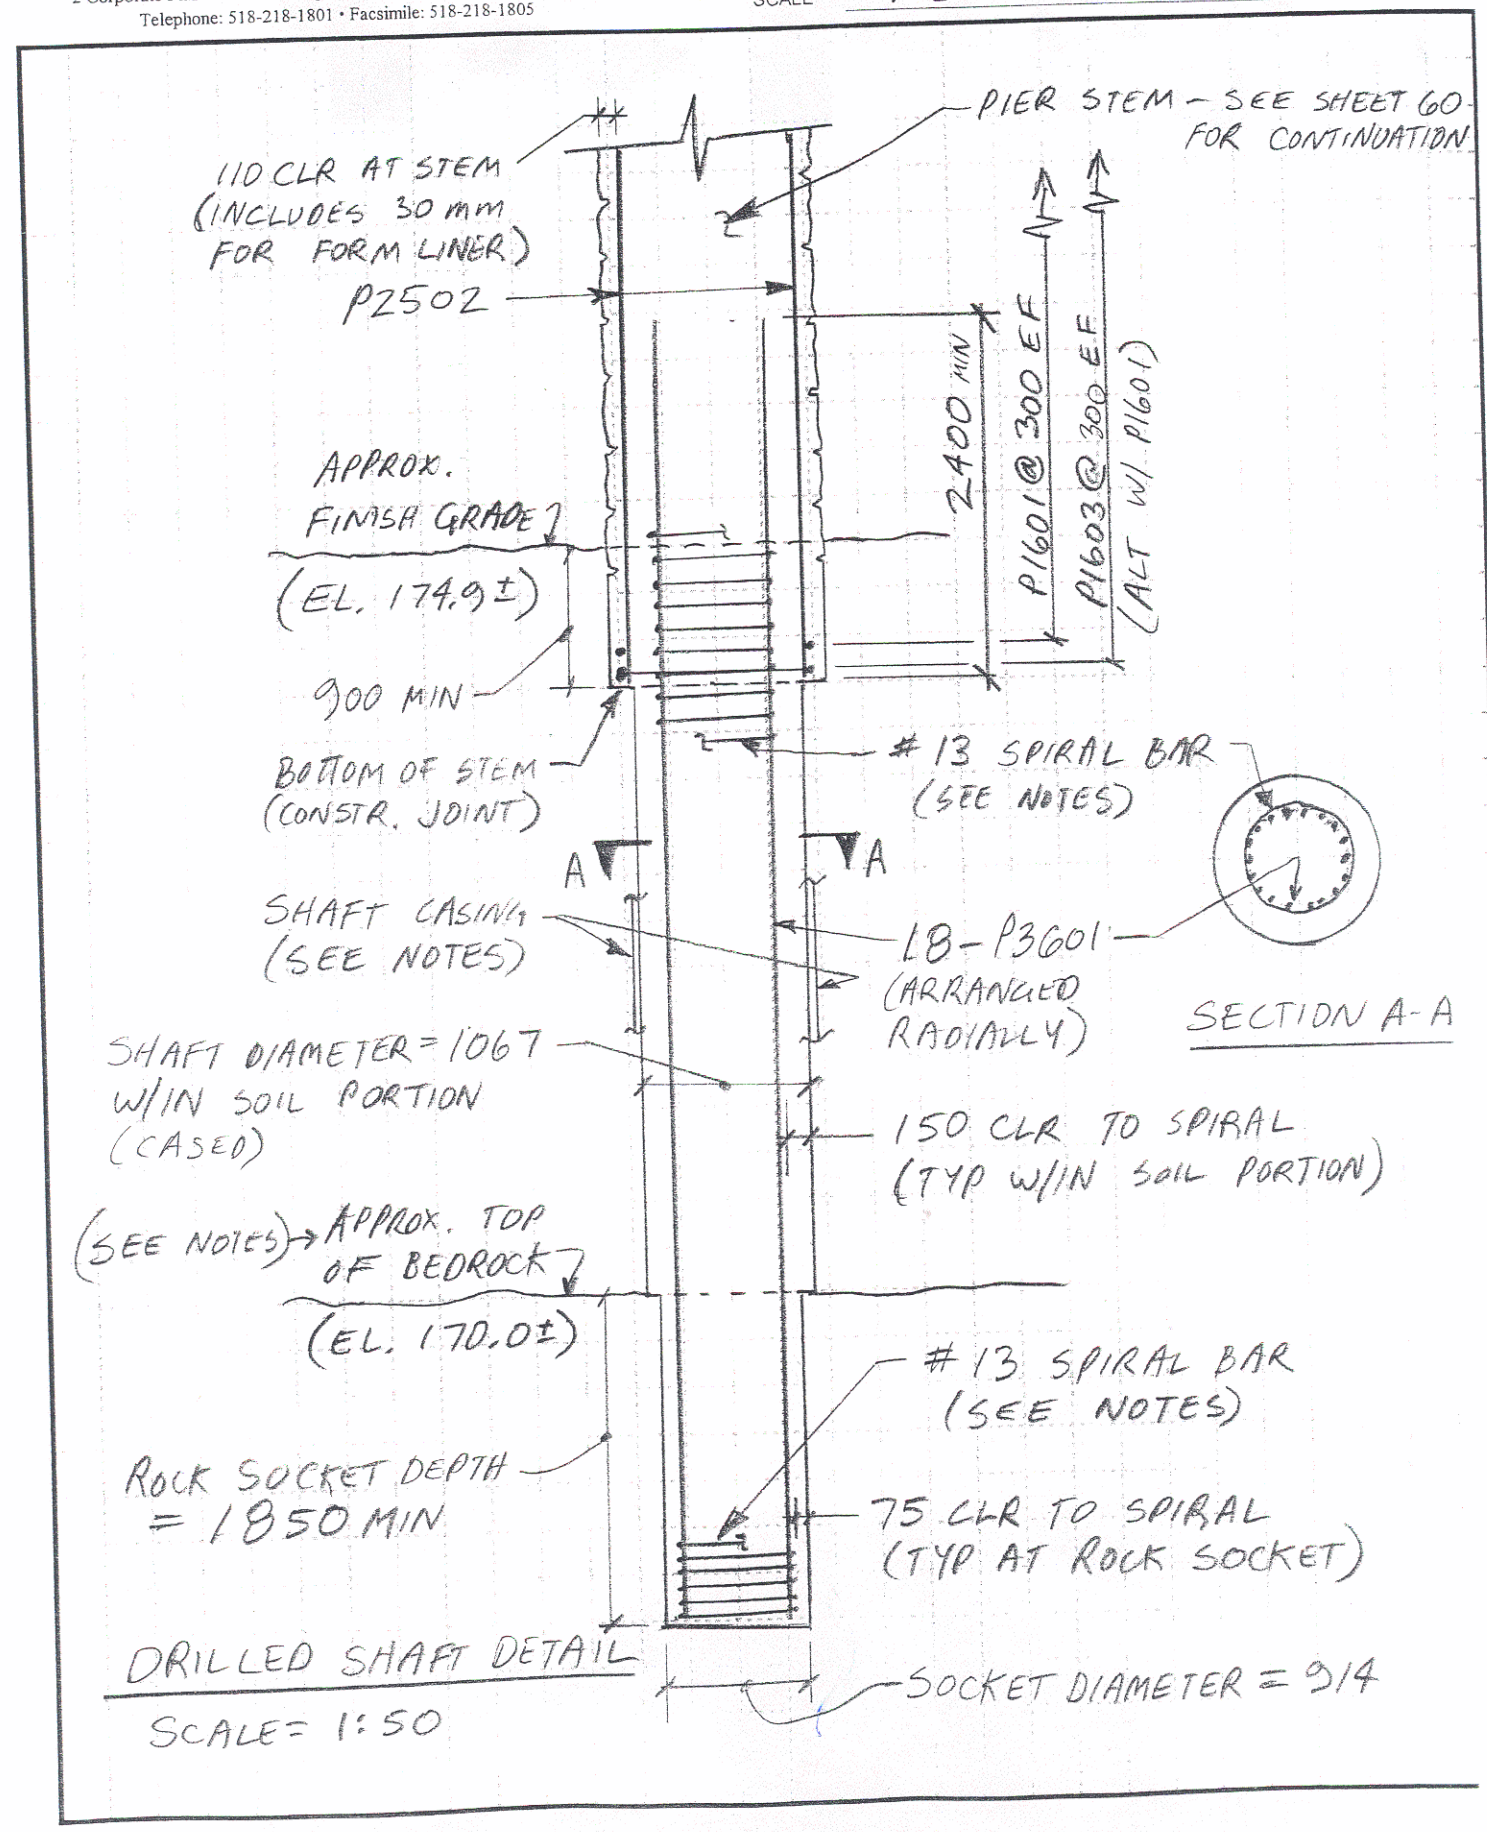 Telephone: 518-218-1801 • Facsimile: 518-218-1805
SCALE
PIER STEM - SEE SHEET 60
FOR CONTINUATION
110 CLR AT STEM
(INCLUDES 30 mm
FOR FORM LINER)
P2502
2400 MIN
P1601 @ 300 EF
P1603 @ 300 EF
(ALT W/ P1601)
APPROX.
FINISH GRADE
(EL. 174.9±)
900 MIN
BOTTOM OF STEM
(CONSTR. JOINT)
# 13 SPIRAL BAR
(SEE NOTES)
A
A
SHAFT CASING
(SEE NOTES)
18-P3601
(ARRANGED
RADIALLY)
SECTION A-A
SHAFT DIAMETER = 1067
W/IN SOIL PORTION
(CASED)
150 CLR TO SPIRAL
(TYP W/IN SOIL PORTION)
(SEE NOTES)→ APPROX. TOP
OF BEDROCK
(EL. 170.0±)
# 13 SPIRAL BAR
(SEE NOTES)
ROCK SOCKET DEPTH
= 1850 MIN
75 CLR TO SPIRAL
(TYP AT ROCK SOCKET)
DRILLED SHAFT DETAIL
SCALE = 1:50
SOCKET DIAMETER = 914